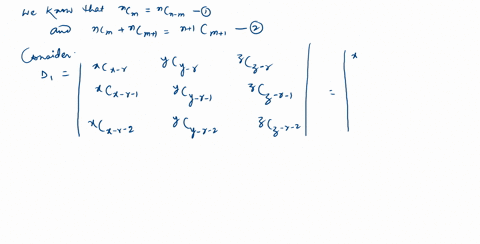 We know that ⁿCₘ = ⁿCₙ₋ₘ —①
and ⁿCₘ + ⁿCₘ₊₁ = ⁿ⁺¹Cₘ₊₁ —②
Consider:
D₁ = | ˣC_{x-r} ʸC_{y-r} ᶻC_{z-r} | = | x
| ˣC_{x-r-1} ʸC_{y-r-1} ᶻC_{z-r-1} |
| ˣC_{x-r-2} ʸC_{y-r-2} ᶻC_{z-r-2} |